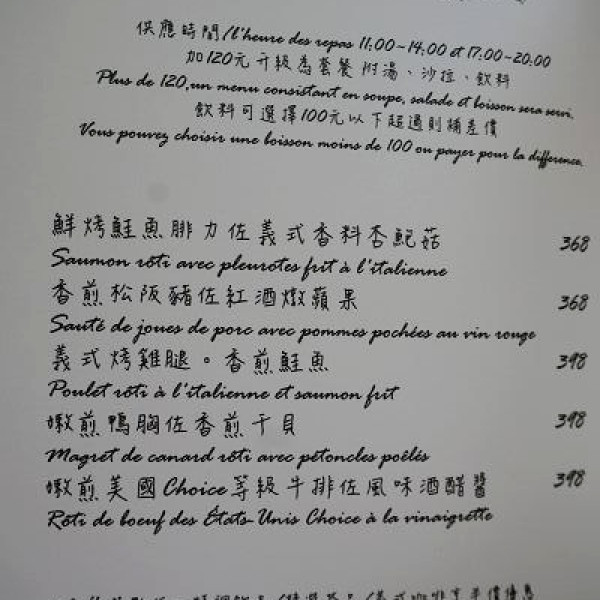 供應時間/l'heure des repas 11:00~14:00 et 17:00~20:00
加120元 升級為套餐 附湯、沙拉、飲料
Plus de 120,un menu consistant en soupe, salade et boisson sera servi.
飲料可選擇100元以下超過則補差價
Vous pouvez choisir une boisson moins de 100 ou payer pour la difference.
鮮烤鮭魚腓力佐義式香料杏鮑菇 368
Saumon rôti avec pleurotes frit à l'italienne
香煎松阪豬佐紅酒燉蘋果 368
Sauté de joues de porc avec pommes pochées au vin rouge
義式烤雞腿。香煎鮭魚 398
Poulet rôti à l'italienne et saumon frit
嫩煎鴨胸佐香煎干貝 398
Magret de canard rôti avec pétoncles poêlés
嫩煎美國Choice等級牛排佐風味酒醋醬 398
Rôti de boeuf des États-Unis Choice à la vinaigrette